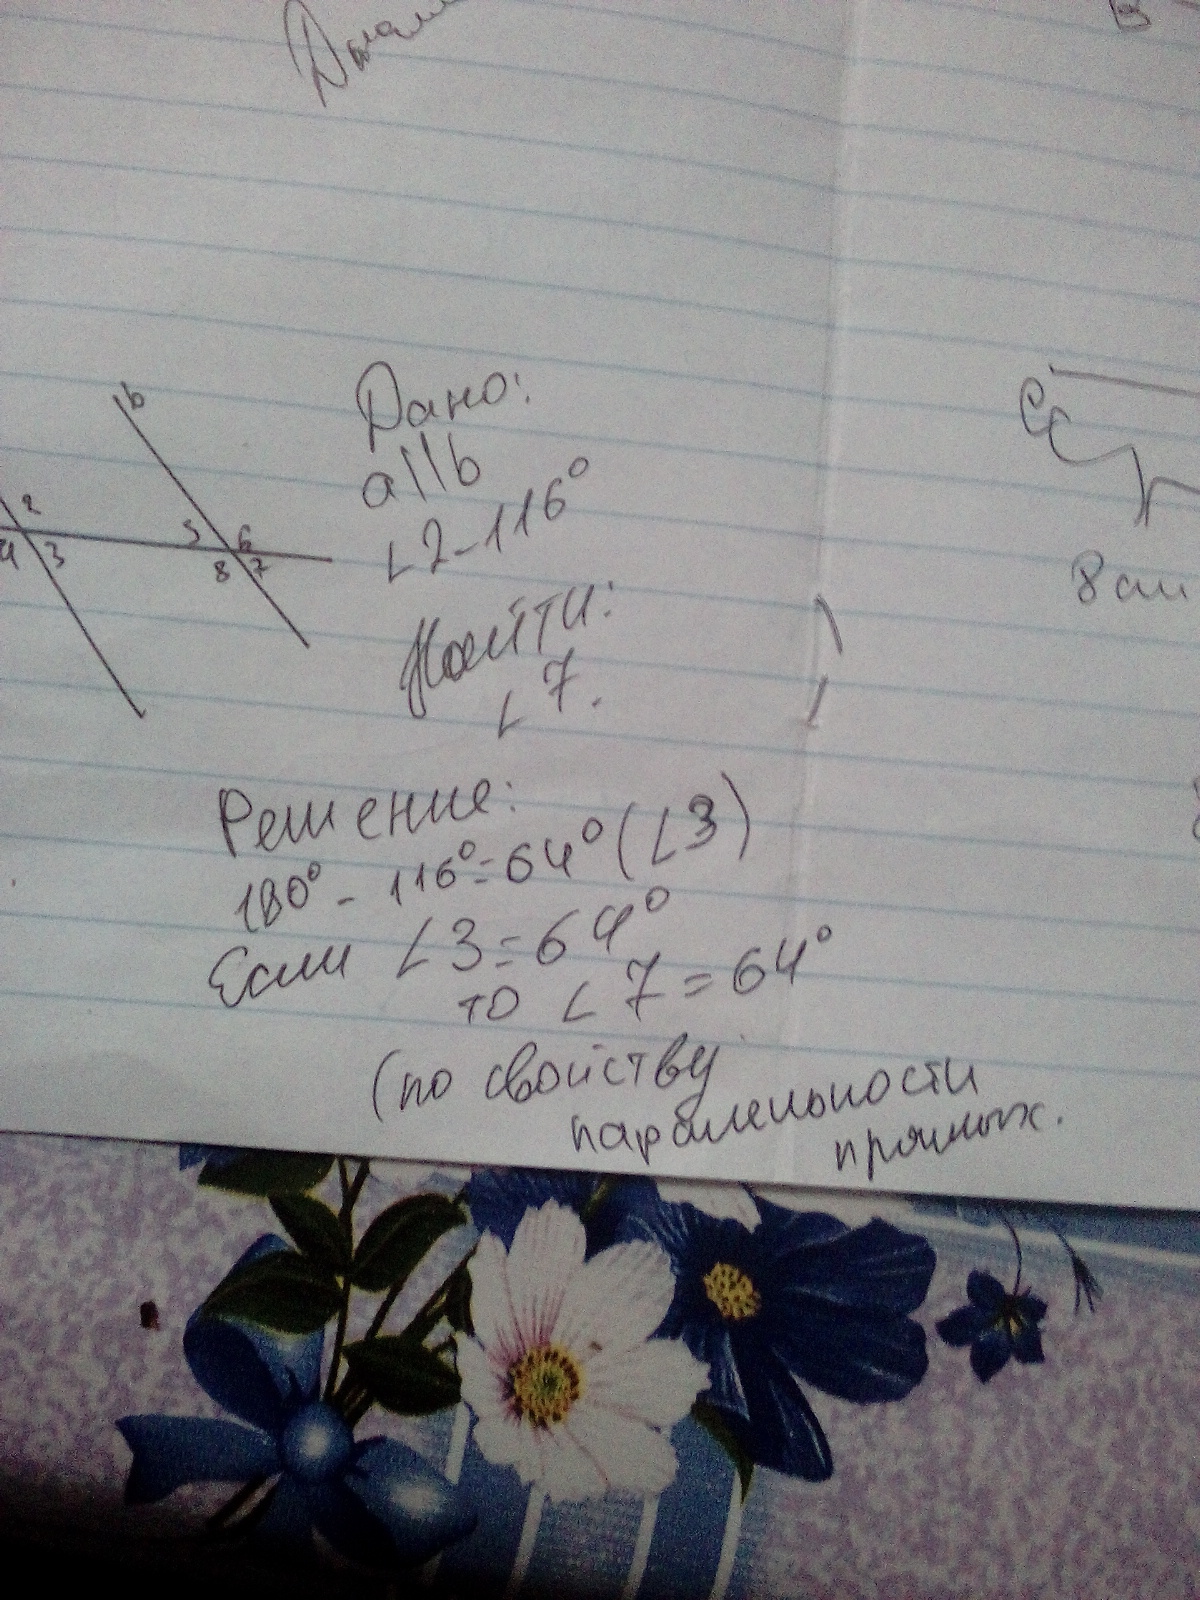 В
b
2
4
3
5
6
8
7
Дано:
a||b
∠2-116°
Найти:
∠7.
8 см
Решение:
180°-116°=64°(∠3)
Если ∠3=64°
то ∠7=64°
(по свойству
паралельности
прямых.